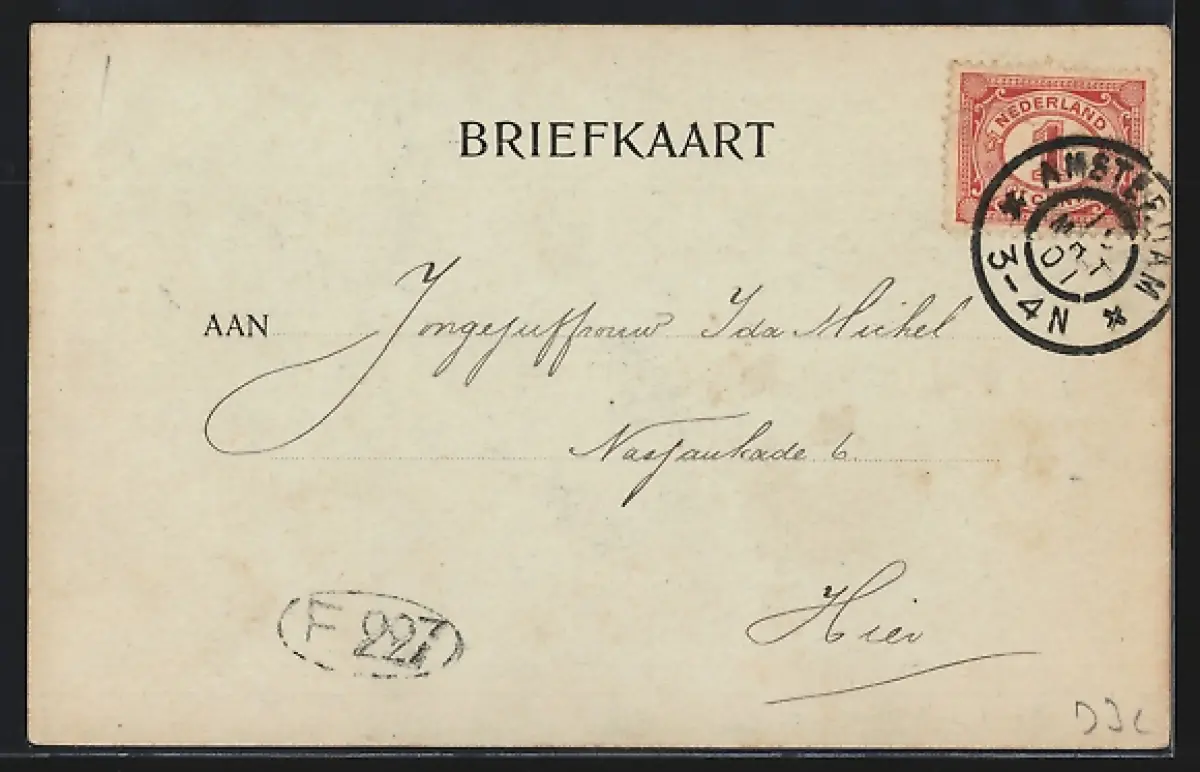 BRIEFKAART
NEDERLAND
1
CENT
AMSTERDAM
3-4N
AAN Jongejuffrouw Ida Michel
Nassaukade 6.
Hier
F 227